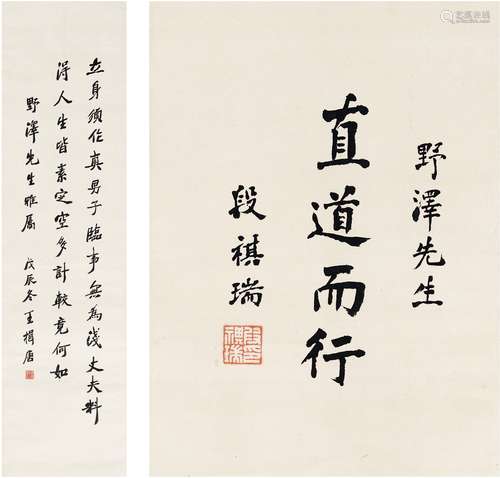 野澤先生
直道而行
段祺瑞
立身須作真男子臨事無為淺丈夫料
得人生皆素定空多計較竟何如
野澤先生雅屬 戊辰冬王揖唐